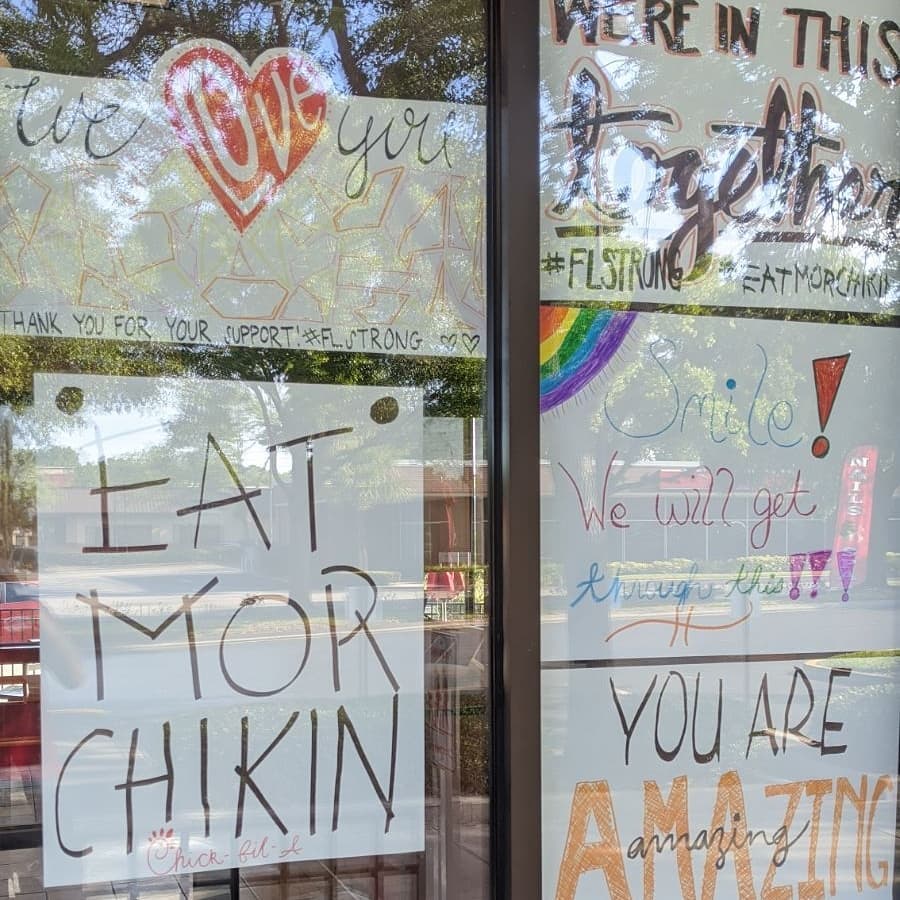 We Love you
THANK YOU FOR YOUR SUPPORT! #FLSTRONG
EAT
MOR
CHIKIN
Chick-fil-A
WE'RE IN THIS
together
#FLSTRONG EATMORCHIKIN
Smile!
We will get
through this!!!
YOU ARE
AMAZING
amazing
NAILS